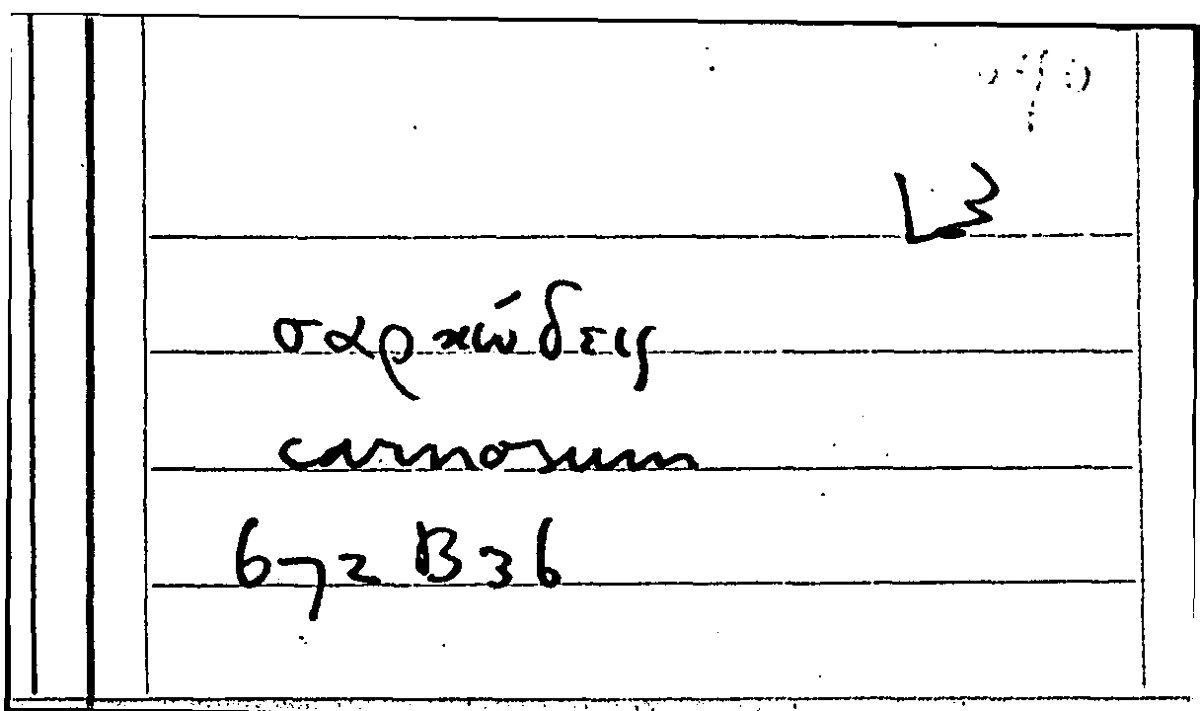 σαρκώδεις
carnosum
672 B36